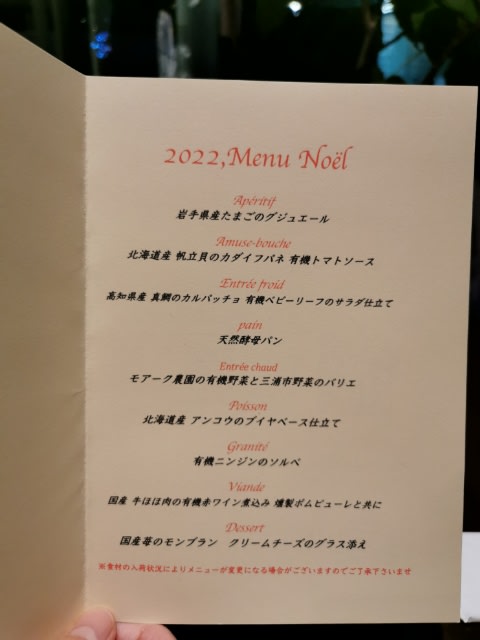 2022,Menu Noël
Apéritif
岩手県産たまごのグジュエール
Amuse-bouche
北海道産 帆立貝のカダイフパネ 有機トマトソース
Entrée froid
高知県産 真鯛のカルパッチョ 有機ベビーリーフのサラダ仕立て
pain
天然酵母パン
Entrée chaud
モアーク農園の有機野菜と三浦市野菜のバリエ
Poisson
北海道産 アンコウのブイヤベース仕立て
Granité
有機ニンジンのソルベ
Viande
国産 牛ほほ肉の有機赤ワイン煮込み 燻製ポムピューレと共に
Dessert
国産苺のモンブラン クリームチーズのグラス添え
※食材の入荷状況によりメニューが変更になる場合がございますのでご了承下さいませ